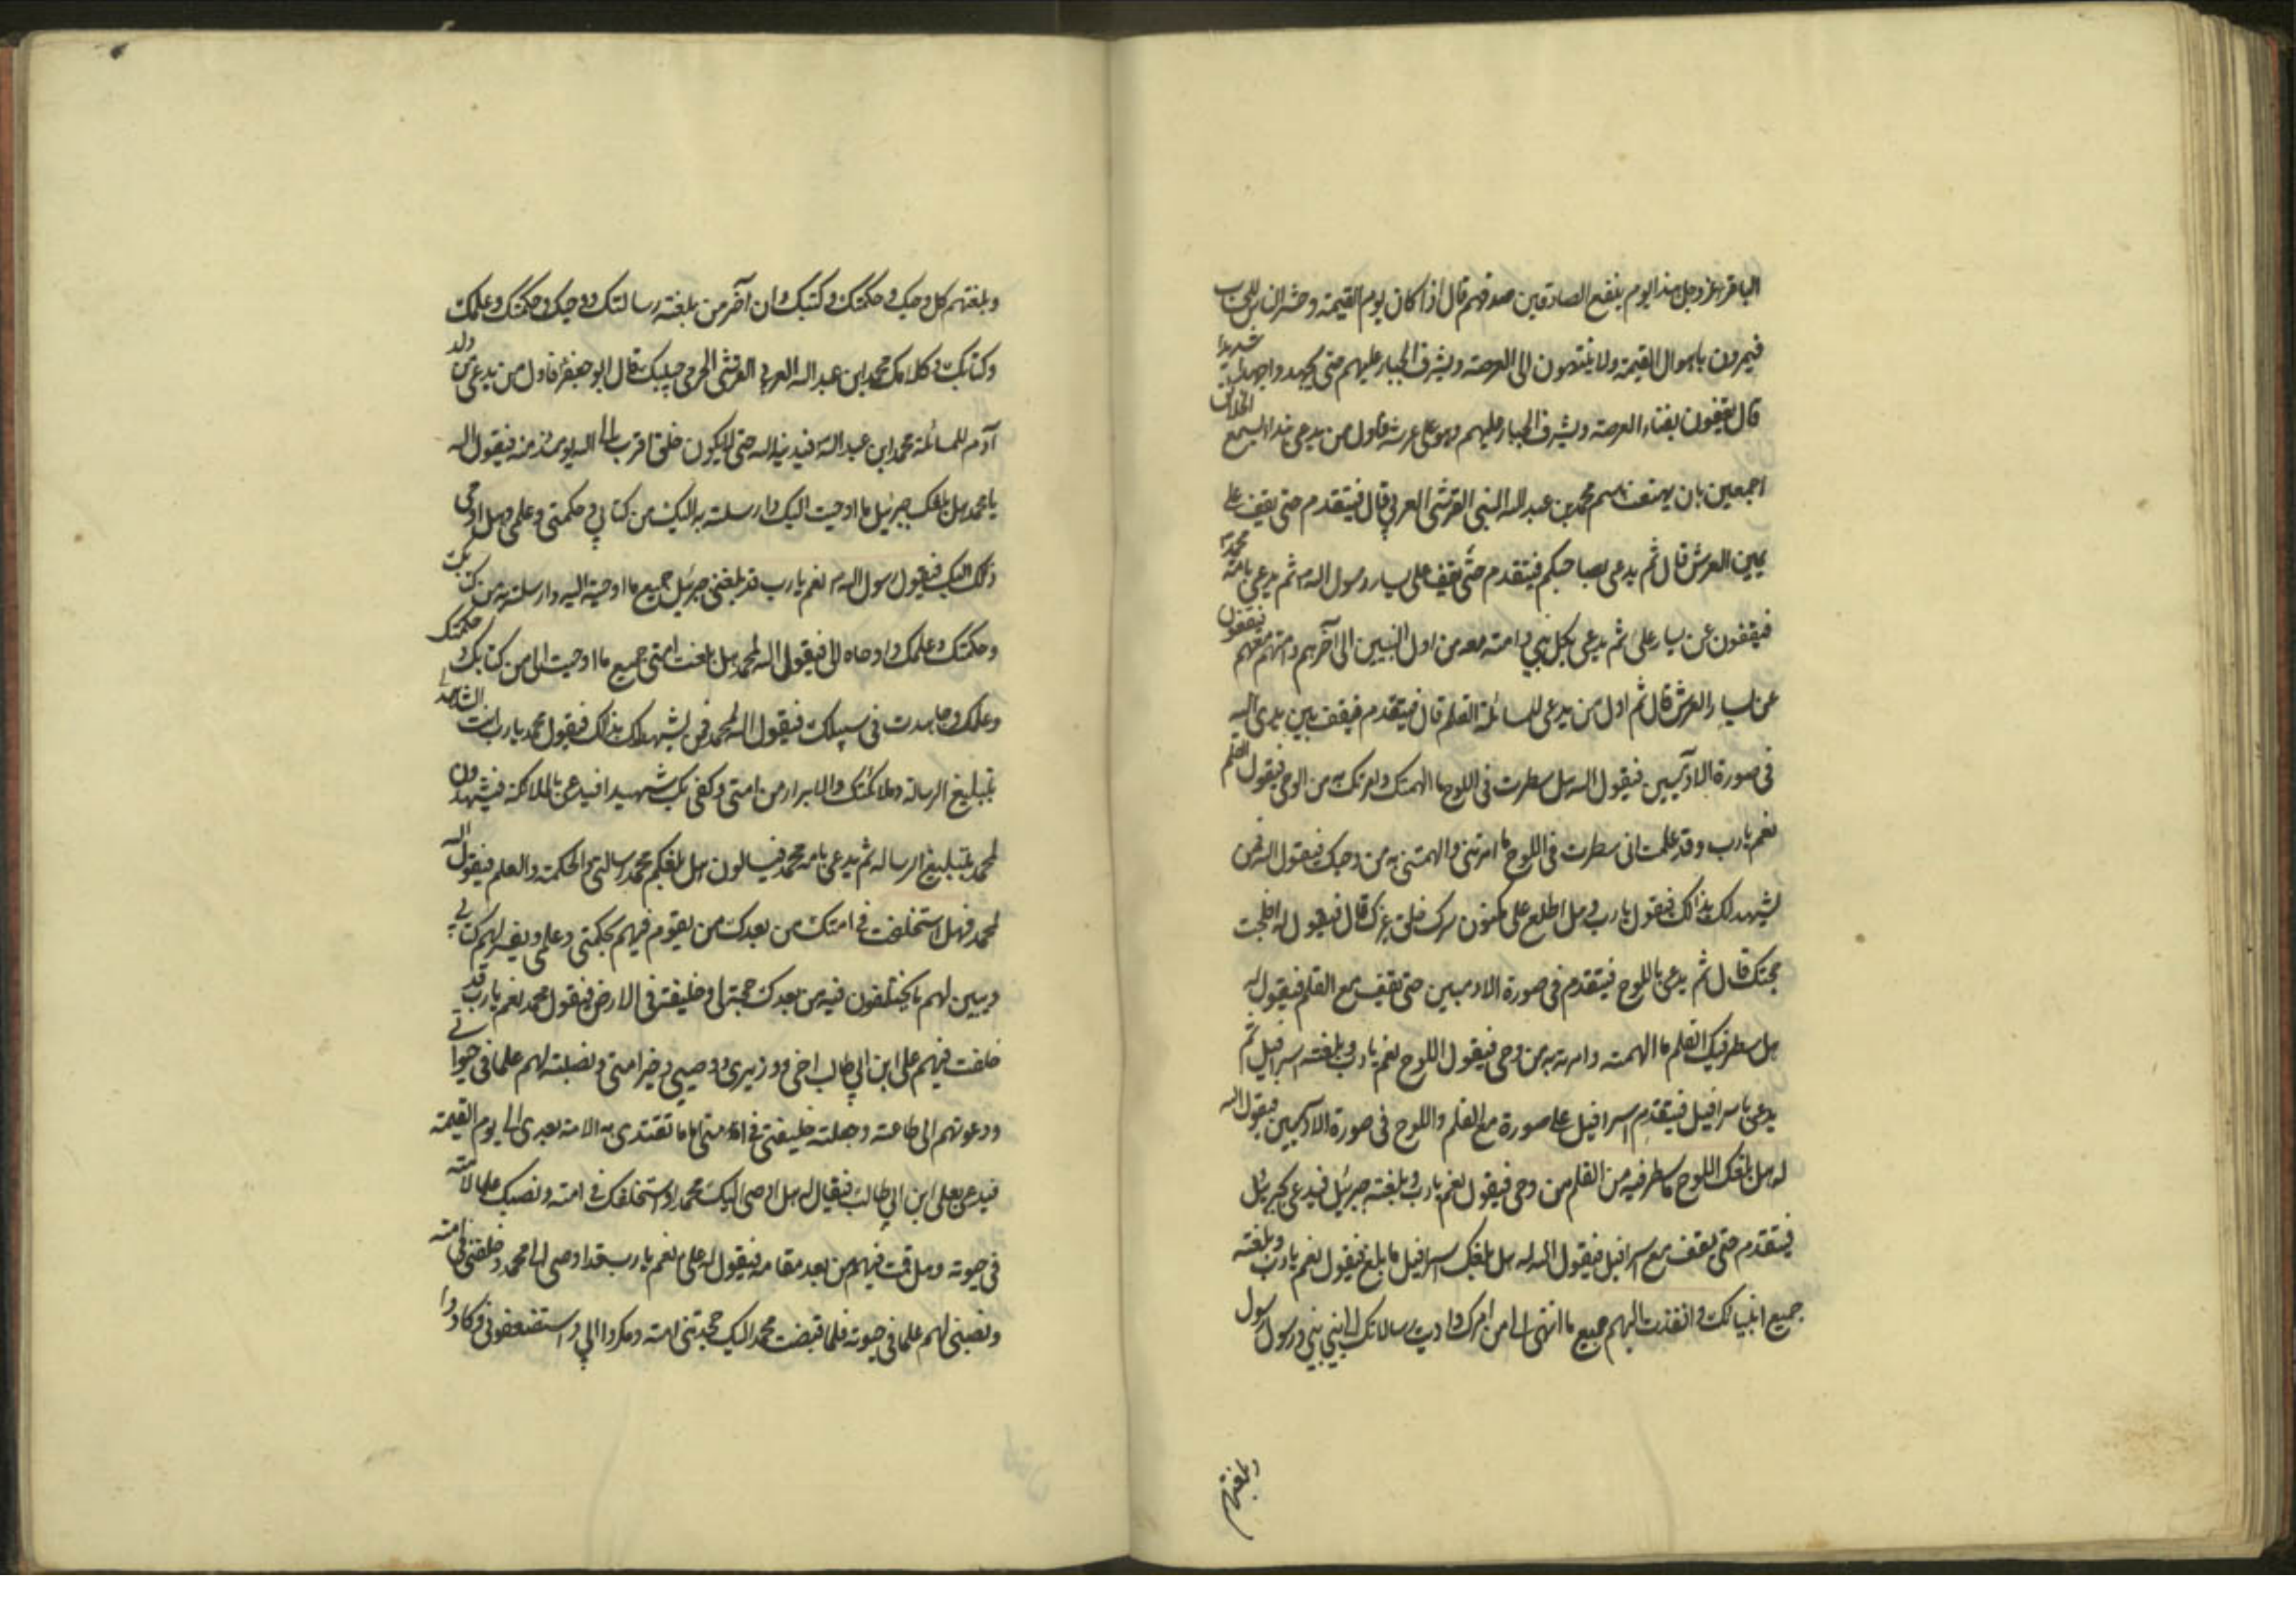 الباقر عز وجل هذا يوم ينفع الصادقين صدقهم قال اذا كان يوم القيمة وحشر الناس للحساب
فيمرون باهوال القيمة ولا ينتهون الى العرصة ويشرف الجبار عليهم حتى يجهدوا جهدا شديدا
قال يقفون بفناء العرصة ويشرف الجبار عليهم وهو على عرشه فاول من يدعى بنداء يسمع الخلائق
اجمعين بان يهتف باسم محمد بن عبد الله النبى القرشى العربي قال فيتقدم حتى يقف على
يمين العرش قال ثم يدعى بصاحبكم فيتقدم حتى يقف على يسار رسول الله ثم يدعى بامة محمد
فيقفون عن يسار على ثم يدعى بكل نبي وامته معه من اول النبيين الى آخرهم وامتهم معهم فيقفون
عن يسار العرش قال ثم اول من يدعى للمسائلة القلم قال فيتقدم فيقف بين يدى الله
فى صورة الادميين فيقول الله هل سطرت فى اللوح ما الهمتك وامرتك به من الوحى فيقول القلم
نعم يا رب وقد علمت انى سطرت فى اللوح ما امرتنى والهمتنى به من وحيك فيقول الله فمن
يشهد لك بذالك فيقول يا رب وهل اطلع على مكنون سرك خلق غيرك قال فيقول له افلجت
حجتك قال ثم يدعى باللوح فيتقدم فى صورة الادميين حتى يقف مع القلم فيقول له
هل سطر فيك القلم ما الهمته وامرته به من وحى فيقول اللوح نعم يا رب وبلغته اسرافيل ثم
يدعى باسرافيل فيتقدم اسرافيل على صورة مع القلم واللوح فى صورة الادميين فيقول الله
له هل بلغك اللوح ما سطر فيه من القلم من وحى فيقول نعم يا رب وبلغته جبرئيل فيدعى بجبرئيل
فيتقدم حتى يقف مع اسرافيل فيقول الله له هل بلغك اسرافيل ما بلغ فيقول نعم يا رب وبلغته
جميع انبيائك وانفذت اليهم جميع ما انتهى الى من امرك واديت رسالاتك الى نبى نبى ورسول رسول
وبلغتهم
وبلغتهم كل وحيك وحكمتك وكتبك وان آخر من بلغته رسالتك ووحيك وحكمتك وعلمك
وكتابك وكلامك محمد ابن عبد الله العربي القرشى الحرمى حبيبك قال ابو جعفر فاول من يدعى من ولد
آدم للمسائلة محمد ابن عبد الله فيدنيه الله حتى لا يكون خلق اقرب الى الله يومئذ منه فيقول الله
يا محمد هل بلغك جبرئيل ما اوحيت اليك وارسلته به اليك من كتابي وحكمتى وعلمى وهل اوحى
ذلك اليك فيقول رسول الله نعم يا رب قد بلغنى جبرئيل جميع ما اوحيته اليه وارسلته به من كتابك
وحكمتك وعلمك واوحاه الى فيقول الله لمحمد هل بلغت امتى جميع ما اوحيت الى من كتابك وحكمتك
وعلمك وجاهدت فى سبيلك فيقول الله لمحمد فمن يشهد لك بذلك فيقول محمد يا رب انت الشاهد لى
بتبليغ الرسالة وملائكتك والابرار من امتى وكفى بك شهيدا فيدعى بالملائكة فيشهدون
لمحمد بتبليغ الرسالة ثم يدعى بامة محمد فيسالون هل بلغكم محمد رسالتى والحكمة والعلم فيقول الله
لمحمد فهل استخلفت فى امتك من بعدك من يقوم فيهم بحكمتى وعلمى ويفسر لهم كتابي
ويبين لهم ما يختلفون فيه من بعدك حجة لى وخليفة فى الارض فيقول محمد نعم يا رب قد
خلفت فيهم على ابن ابي طالب اخى ووزيرى ووصيى وخير امتى ونصبته لهم علما فى حيواتى
ودعوتهم الى طاعته وجعلته خليفتى فى امتى اماما تقتدى به الامة بعدى الى يوم القيمة
فيدعى بعلى ابن ابي طالب فيقال له هل اوصى اليك محمد واستخلفك فى امته ونصبك علما لامته
فى حيوته وهل قمت فيهم من بعد مقامه فيقول له على نعم يا رب قد اوصى الى محمد وخلفنى فى امته
ونصبنى لهم علما فى حيوته فلما قبضت محمد اليك جحدتنى امته ومكروا ابي واستضعفونى وكادوا